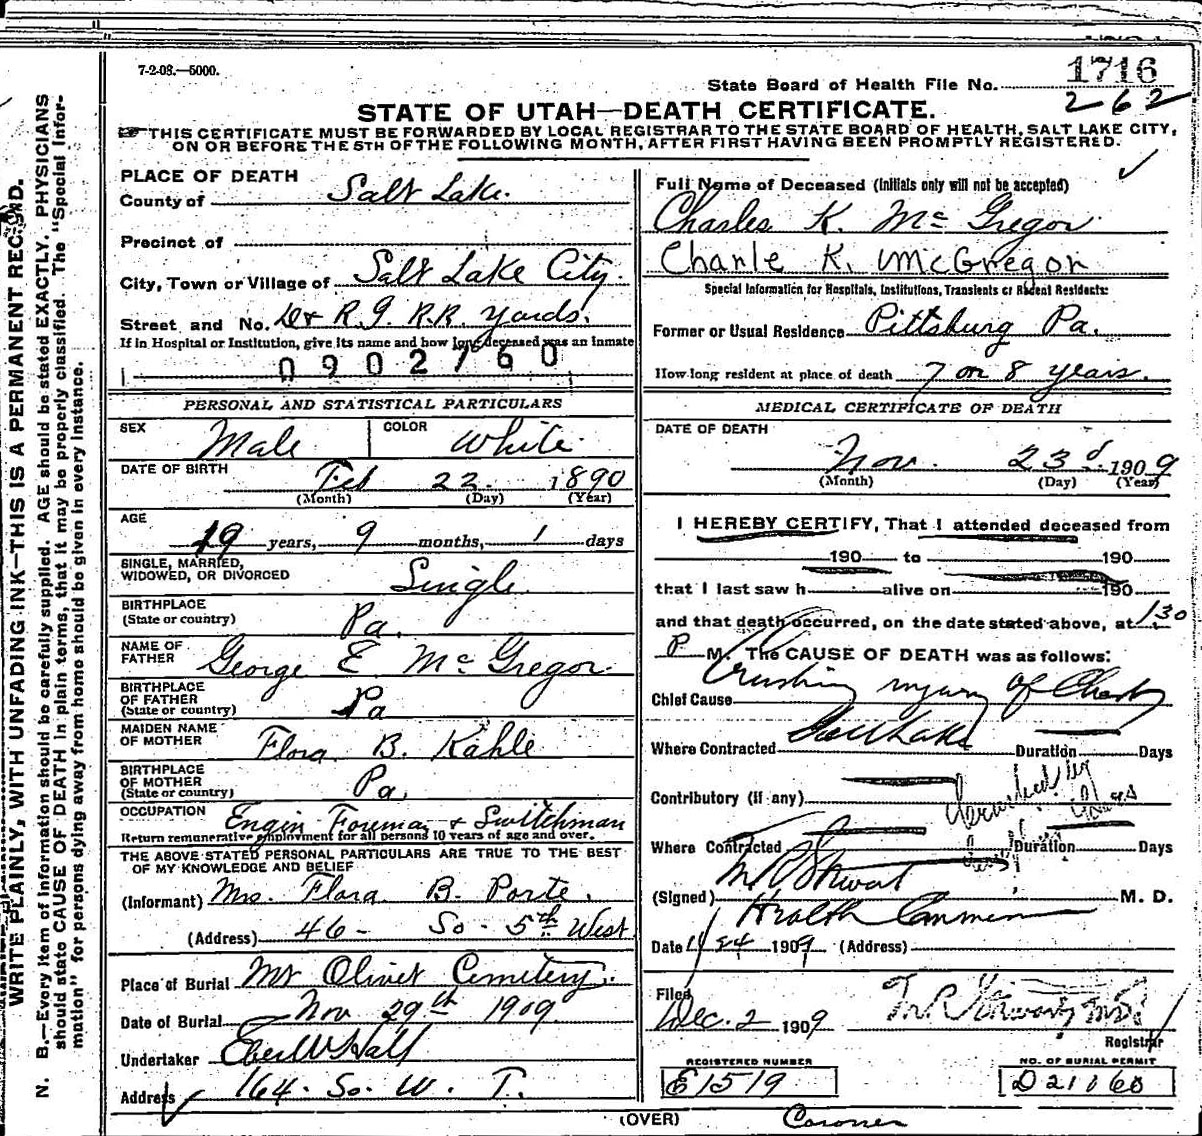 7-2-08.—5000.
State Board of Health File No. 1716
262
STATE OF UTAH—DEATH CERTIFICATE.
THIS CERTIFICATE MUST BE FORWARDED BY LOCAL REGISTRAR TO THE STATE BOARD OF HEALTH, SALT LAKE CITY,
ON OR BEFORE THE 5TH OF THE FOLLOWING MONTH, AFTER FIRST HAVING BEEN PROMPTLY REGISTERED.
WRITE PLAINLY, WITH UNFADING INK—THIS IS A PERMANENT RECORD.
N. B.—Every item of information should be carefully supplied. AGE should be stated EXACTLY. PHYSICIANS
should state CAUSE OF DEATH in plain terms, that it may be properly classified. The "Special Infor-
mation" for persons dying away from home should be given in every instance.
PLACE OF DEATH
County of Salt Lake.
Precinct of
City, Town or Village of Salt Lake City.
Street and No. D & R.G. R.R. Yards.
If in Hospital or Institution, give its name and how long deceased was an Inmate
0902760
PERSONAL AND STATISTICAL PARTICULARS
SEX Male COLOR White
DATE OF BIRTH Feb 22 1890
(Month) (Day) (Year)
AGE
19 years, 9 months, 1 days
SINGLE, MARRIED,
WIDOWED, OR DIVORCED Single
BIRTHPLACE
(State or country) Pa.
NAME OF
FATHER George E McGregor
BIRTHPLACE
OF FATHER
(State or country) Pa
MAIDEN NAME
OF MOTHER Flora B. Kahle
BIRTHPLACE
OF MOTHER
(State or country) Pa.
OCCUPATION Engin Foreman & Switchman
Return remunerative employment for all persons 10 years of age and over.
THE ABOVE STATED PERSONAL PARTICULARS ARE TRUE TO THE BEST
OF MY KNOWLEDGE AND BELIEF
(Informant) Mrs. Flora B. Porte.
(Address) 46 - So - 5th West
Place of Burial Mt Olivet Cemetery.
Date of Burial Nov 29th 1909
Undertaker Eber W Hall
Address 164 - So. W. T.
Full Name of Deceased (Initials only will not be accepted)
Charles K. McGregor
Charle K. McGregor
Special Information for Hospitals, Institutions, Transients or Recent Residents:
Former or Usual Residence Pittsburg Pa.
How long resident at place of death 7 or 8 years.
MEDICAL CERTIFICATE OF DEATH
DATE OF DEATH
Nov. 23d 1909
(Month) (Day) (Year)
I HEREBY CERTIFY, That I attended deceased from
190 to 190
that I last saw h alive on 190
and that death occurred, on the date stated above, at 1.30
P M. The CAUSE OF DEATH was as follows:
Chief Cause Crushing injury of Chest
Where Contracted Salt Lake Duration Days
Contributory (if any)
Where Contracted Duration Days
(Signed) M. D.
Health Commissioner
Date 11/24 1909 (Address)
Filed
Dec. 2 1909
Registrar
REGISTERED NUMBER
E1519
NO. OF BURIAL PERMIT
D21060
(OVER)
Coroner